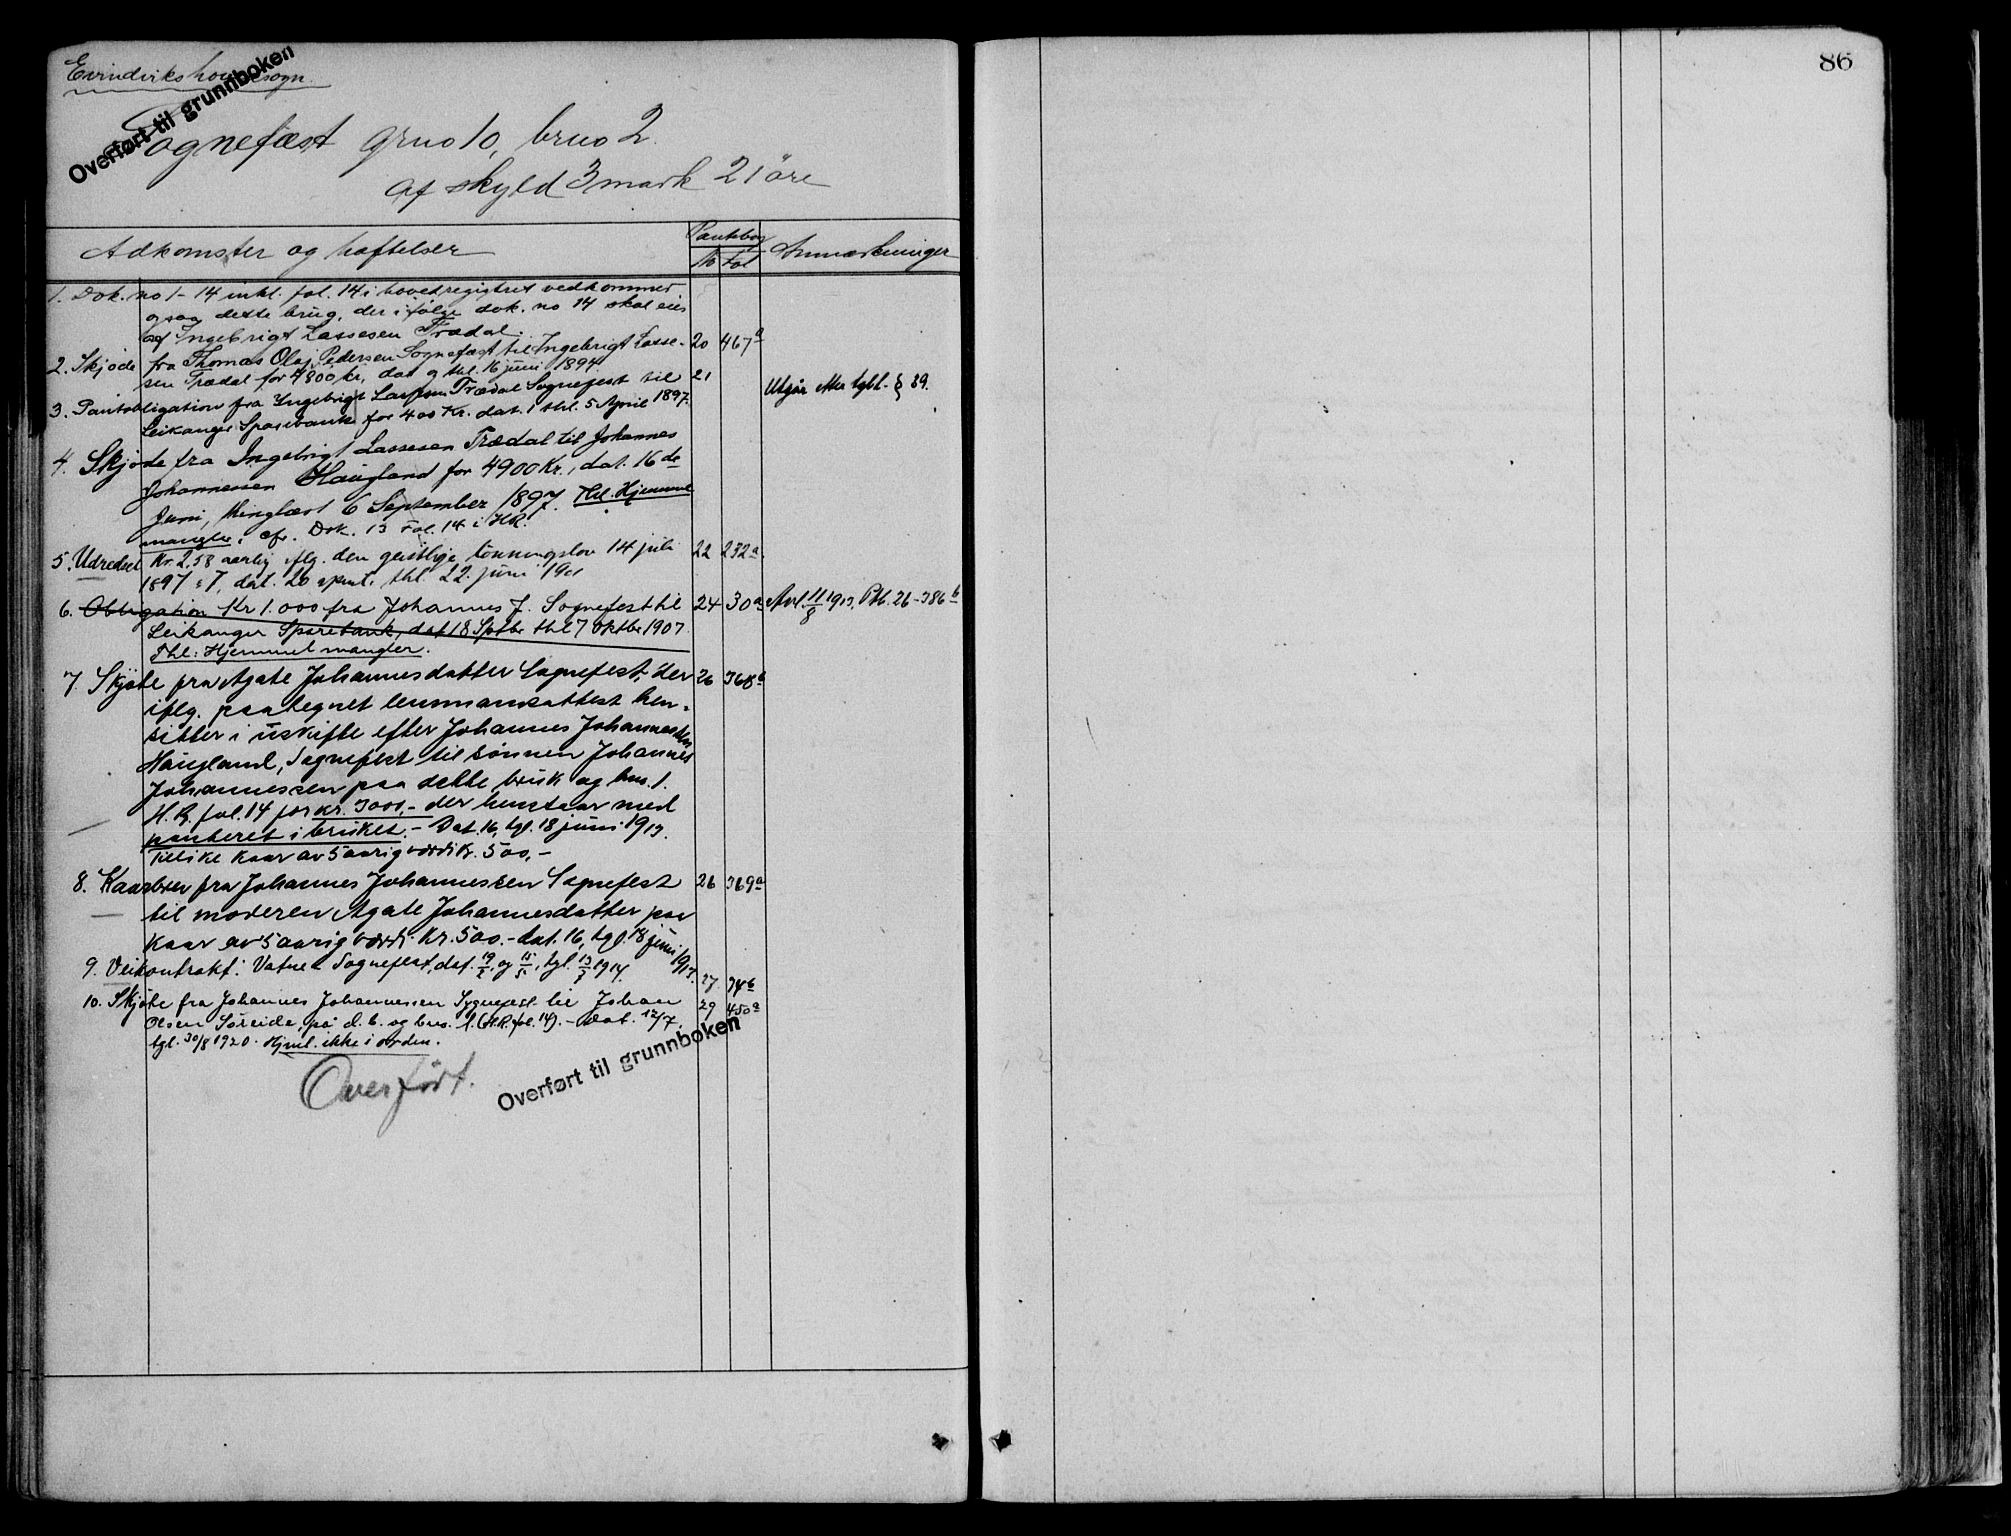 86
Evindviks hovedsogn.
Overført til grunnboken
Sognefæst grno 10, brno 2.
af skyld 3 mark 21 öre
Adkomster og hæftelser
Pantebog
No Fol
Anmærkninger
1. Dok. no 1-14 inkl. fol. 14 i hovedregistret vedkommer
ogsaa dette brug, der ifølge dok. no 14 skal eies
af Ingebrigt Lassesen Trædal.
2. Skjøde fra Thomas Olaj Pedersen Sognefæst til Ingebrigt Lasse- 20 467a
sen Trædal for 4800 kr, dat og thl. 16 juni 1894
3. Pantobligation fra Ingebrigt Lassesen Trædal Sognefest til 21 Utgår etter tgbl. § 39.
Leikanger Sparebank for 400 Kr. dat. 1 thl. 5 April 1897.
4. Skjøde fra Ingebrigt Lassesen Trædal til Johannes
Johannessen Haugland for 4900 Kr., dat. 16de
Juni, thinglæst 6 September 1897. Thl. Hjemmel
mangler, cfr. Dok. 13 Fol. 14 i HR.
5. Udredsel Kr. 2.58 aarlig iflg. den geistlige lønningslov 14 juli 22 232a
1897 § 7, dat. 20 thl. 22. juni 1901
6. Obligation Kr 1.000 fra Johannes J. Sognefest til 24 30a Avl. 11/8 1913, Ptb. 26-386b
Leikanger Sparebank, dat 18 Sptbr thl 7 Oktbr 1907.
Thl: Hjemmel mangler.
7. Skjøte fra Agate Johannesdatter Sognefest, der 26 368b
iflg. paategnet lensmansattest hen-
sitter i uskifte efter Johannes Johannessen
Haugland, Sognefest til sønnen Johannes
Johannessen paa dette bruk og bno. 1.
H. R. fol. 14 for kr. 3000,- der henstaar med
panteret i bruket. - Dat. 16, tgl. 18 juni 1913.
Tillike kaar av 5 aarig værdi kr. 500,-
8. Kaarbrev fra Johannes Johannessen Sognefest 26 369a
til moderen Agate Johannesdatter paa
kaar av 5 aarig værdi Kr. 500.- dat. 16, tgl. 18 juni 1913.
9. Veikontrakt: Vatne - Sognefest, dat. 19/2 og 15/5, tgl. 13/7 1914. 27 74b
10. Skjøte fra Johannes Johannessen Sygnefest til Johan 29 450a
Olsen Søreide, på d. b. og bno. 1 (H.R. fol. 14). - Dat. 12/7,
tgl. 30/8 1920. Hjml. ikke i orden.
Overført.
Overført til grunnboken